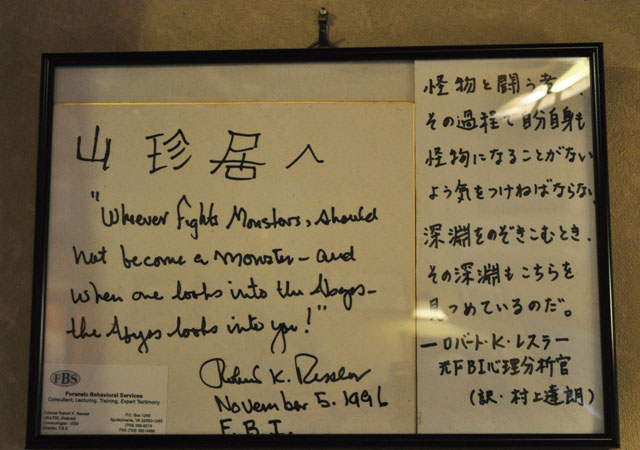 山珍居へ
"Whoever fights Monsters, should
not become a monster - and
when one looks into the Abyss -
the Abyss looks into you!"
Robert K. Ressler
November 5. 1996
F.B.I.
FBS
Forensic Behavioral Services
Consultant, Lecturing, Training, Expert Testimony
怪物と闘う者
その過程で自分自身も
怪物になることがない
よう気をつけねばならない
深淵をのぞきこむとき、
その深淵もこちらを
見つめているのだ。
―ロバート・K・レスラー
元FBI心理分析官
(訳・村上達朗)